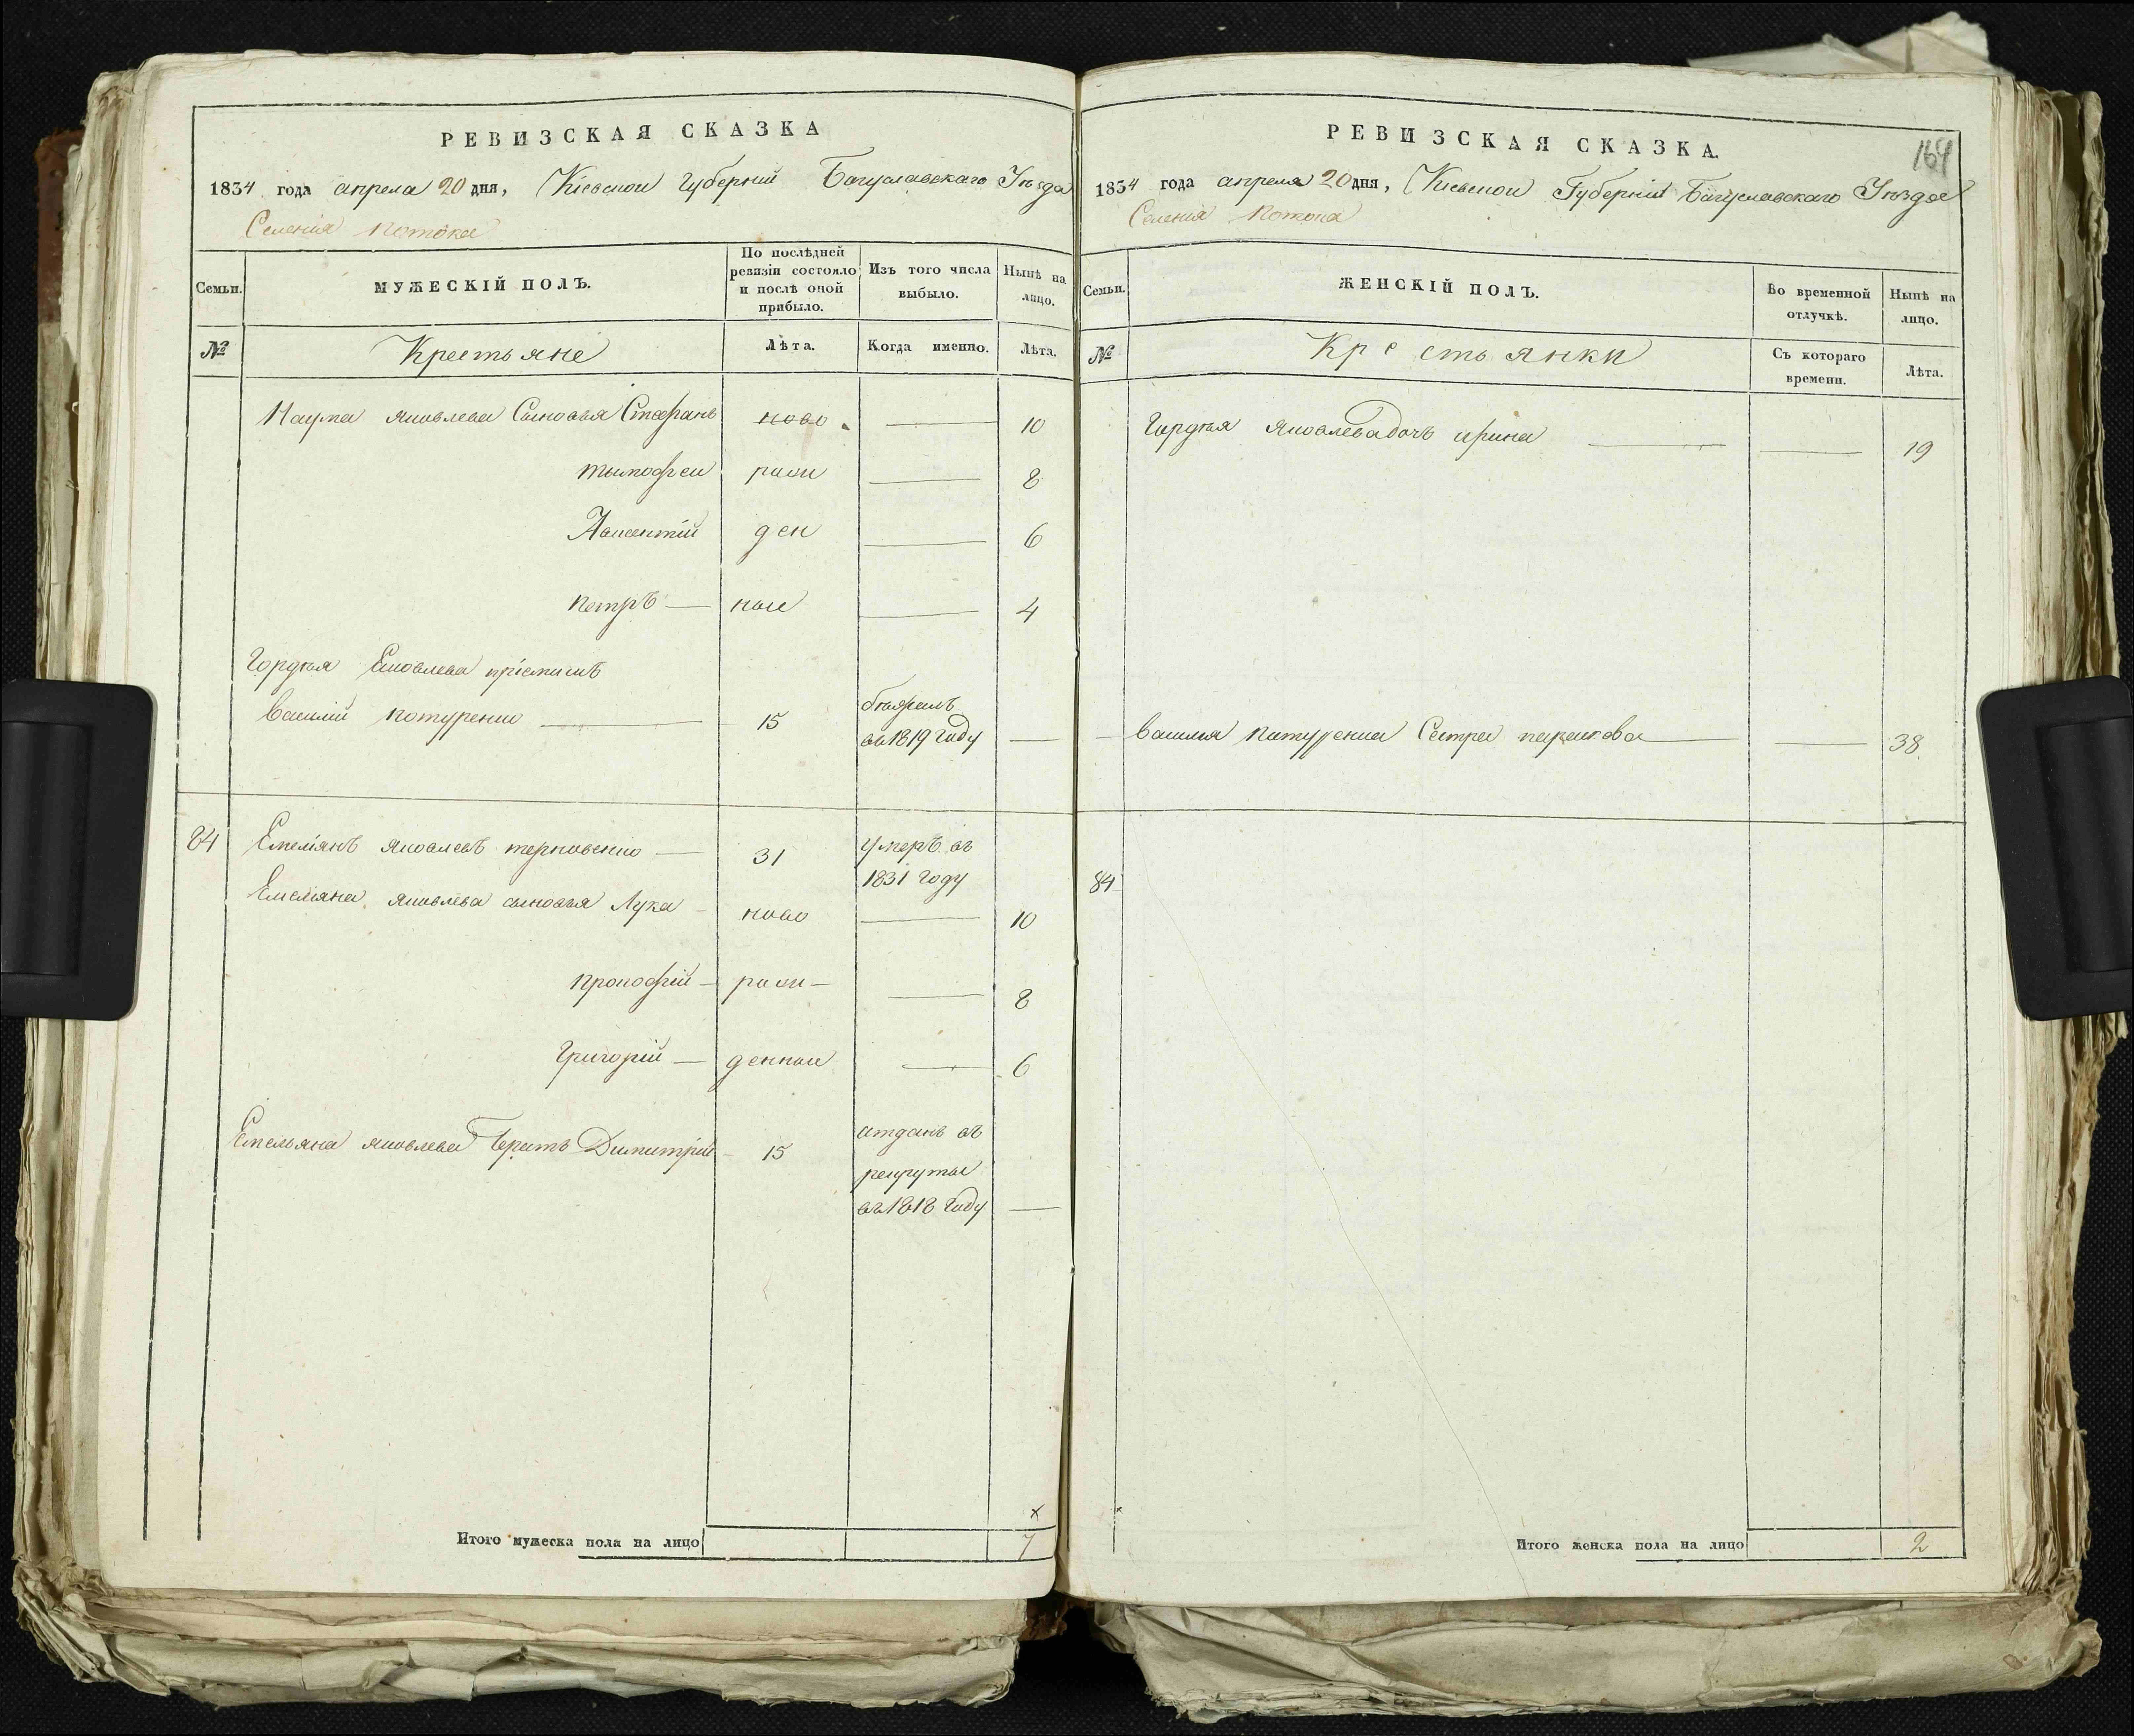 РЕВИЗСКАЯ СКАЗКА
1834 года апреля 20 дня, Кіевской Губерніи Богуславскаго Уезда
Селенія Потока
Семьи.
МУЖЕСКІЙ ПОЛЪ.
По послѣдней ревизіи состояло и послѣ оной прибыло.
Изъ того числа выбыло.
Нынѣ на лицо.
№
Крестьяне
Лѣта.
Когда именно.
Лѣта.
Наума Яковлева Сыновья Стефанъ ново 10
тымофеи рож 8
ден 6
петръ ные 4
Гордѣя Яковлева пріемышъ
Василій потуренко 15 бѣжалъ
въ 1819 году
84 Емеліянъ Яковлевъ терновенко 31 Умеръ въ
1831 Году
Емеліяна Яковлева сыновья Лука ново 10
прокофій рож 8
Григорій денные 6
Емельяна Яковлева братъ Димитрій 15 отданъ въ
рекруты
въ 1818 Году
Итого мужеска пола на лицо 7
РЕВИЗСКАЯ СКАЗКА.
164
1834 года апреля 20 дня, Кіевской Губерніи Богуславскаго Уезда
Селенія Потока
Семьи.
ЖЕНСКІЙ ПОЛЪ.
Во временной отлучкѣ.
Нынѣ на лицо.
№
Крестьянки
Съ котораго времени.
Лѣта.
Гордѣя Яковлева дочь ирина 19
Василя Потуренка Сестра парасковея 38
84
Итого женска пола на лицо 2